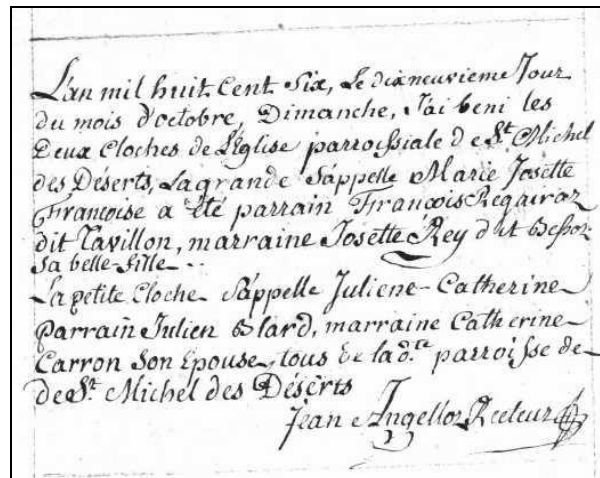 L'an mil huit Cent Six, Le dixneuvieme Jour
du mois d'octobre, Dimanche, J'ai beni les
Deux Cloches de L'Eglise parroissiale de St. Michel
des Déserts, La grande S'appelle Marie Josette
Françoise a été parrain François Regairaz
dit Pavillon, marraine Josette Rey dit
Sa belle-fille
La petite Cloche S'appelle Juliene-Catherine
parrain Julien Blard, marraine Catherine
Carron Son Epouse, tous de la d.te parroisse de
de St. Michel des Déserts
Jean Ingelloz Recteur